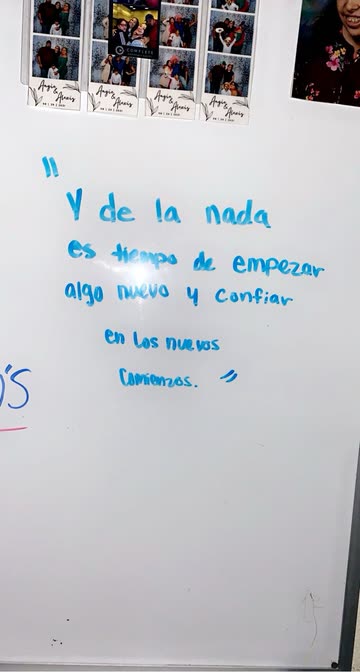 Angie & Alexis
Angie & Alexis
Angie & Alexis
Angie & Alexis
"
Y de la nada
es tiempo de empezar
algo nuevo y confiar
en los nuevos
comienzos. "
's